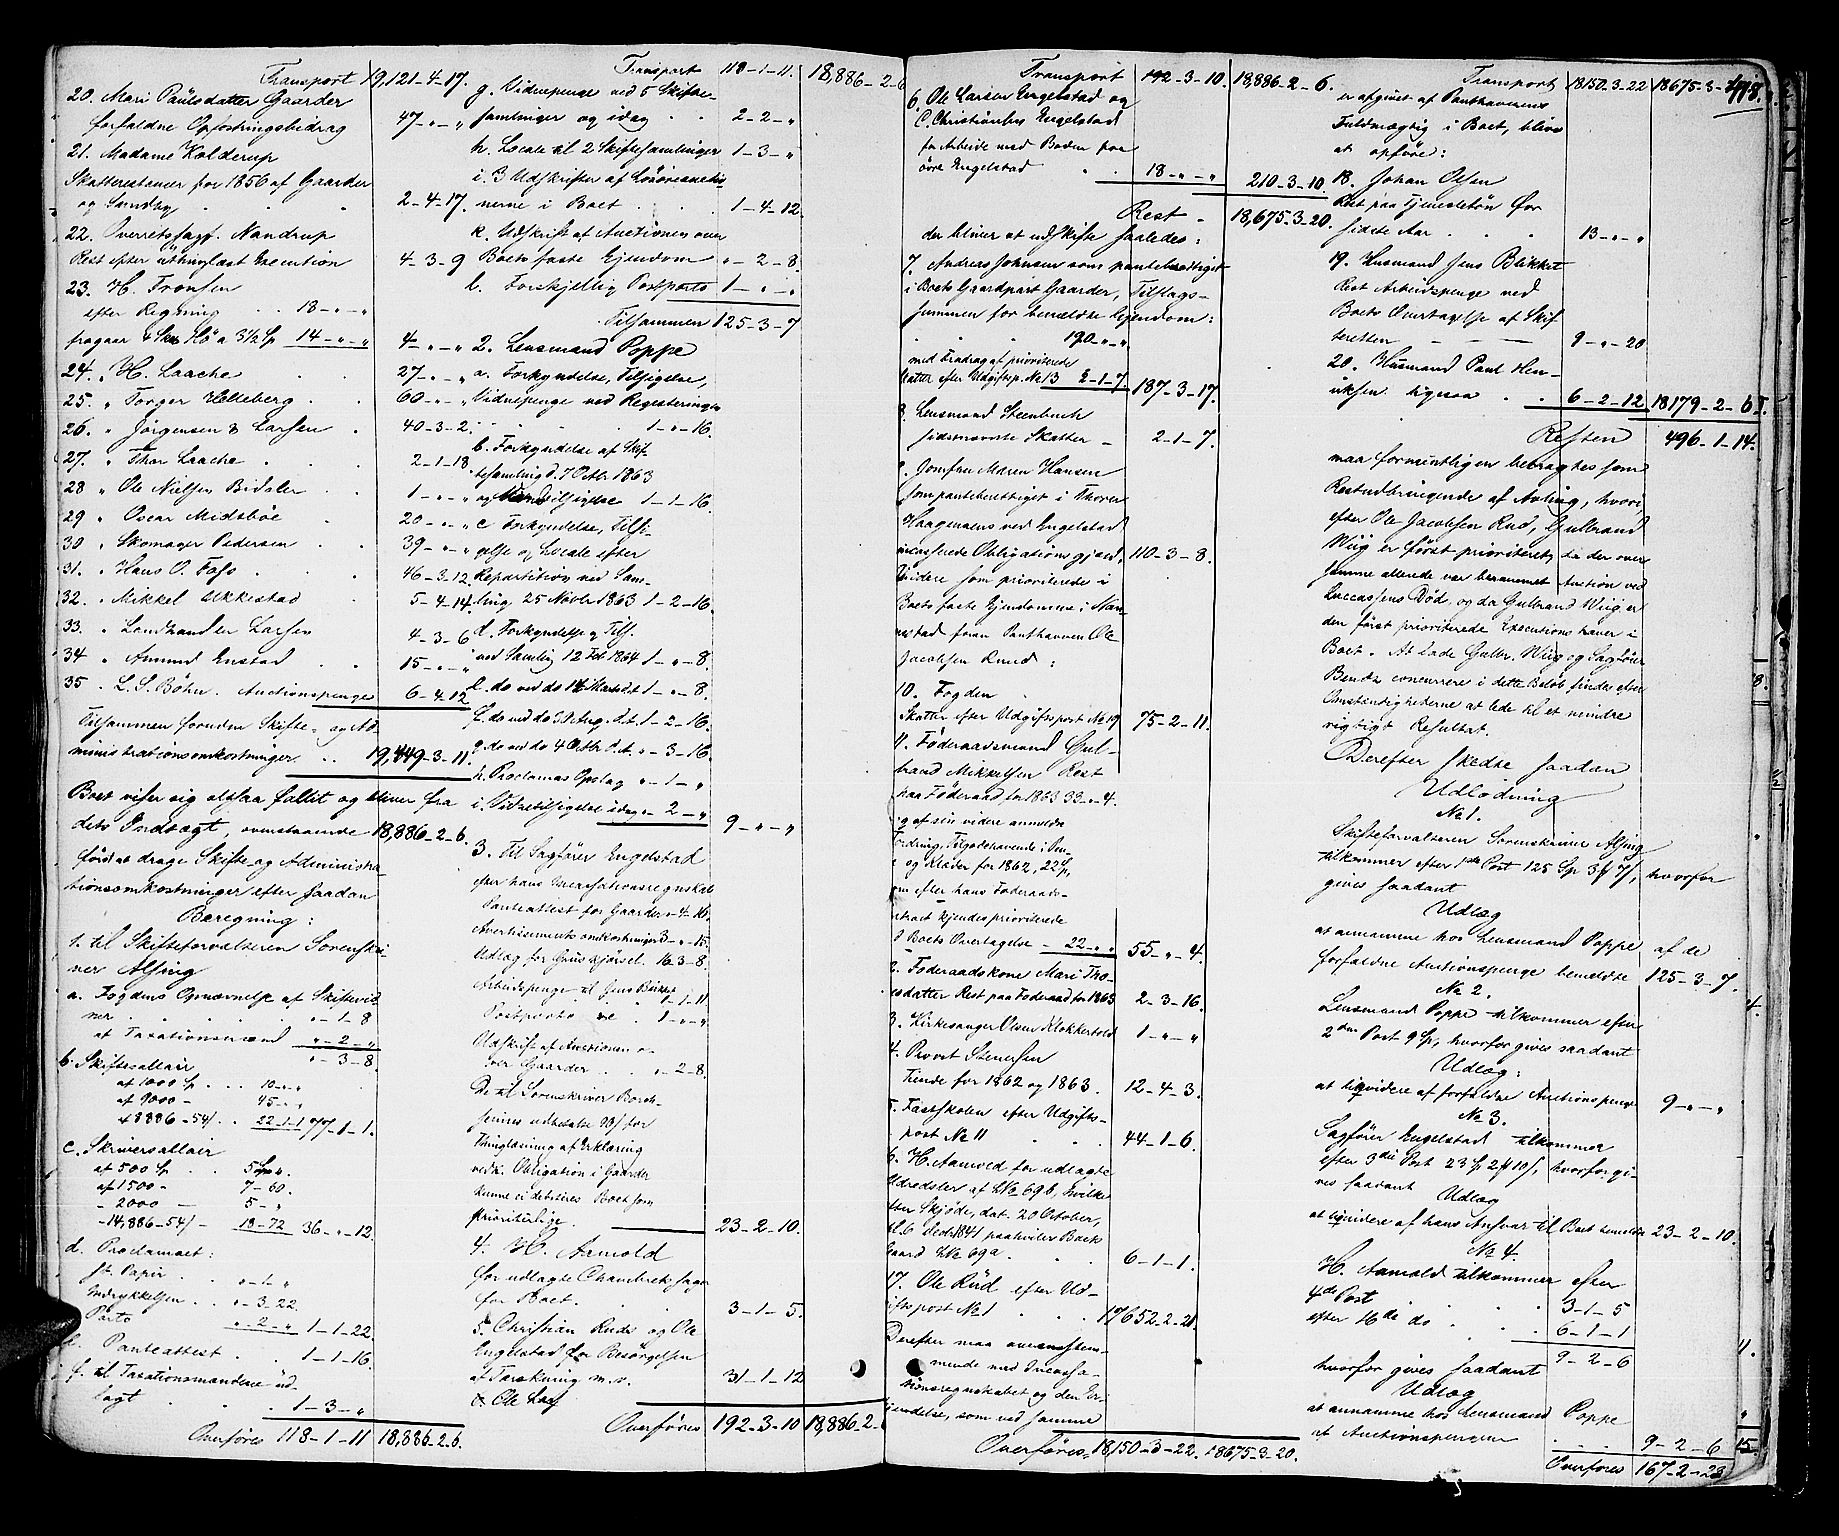 Transport 19,121-4-17.
20. Mari Paulsdatter Gaarder
forfaldne Opfostringsbidrag 47-"-"
21. Madame Kolderup
Skatterestancer for 1856 af Gaarder
og Sundby 2-4-17.
22. Overretssagf. Nandrup
Rest efter uthinglæst Execution 4-3-9
23. H. Fronsen
efter Regning 18-"-"
fragaar 4 Sk Hö a 3½ Sp 14-"-" 4-"-"
24. " H. Laache 27-"-"
25. " Torger Helleberg 60-"-"
26. " Jörgensen & Larsen 40-3-2.
27. " Thor Laache 2-1-18.
28 " Ole Nielsen Bidsler 1-"-"
29 " Oscar Midsböe 20-"-"
30 " Skomager Pedersen 39-"-"
31. " Hans O. Foss 46-3-12
32. " Mikkel Ukkestad 5-4-14.
33. " Landhandler Larsen 4-3-6
34 " Amund Enstad 15-"-"
35. " L. S. Böhn. Auctionspenge 6-4-12
Tilsammen foruden Skifte- og Ad-
ministrationsomkostninger 19,449-3-11.
Boet viser sig altsaa fallit og bliver fra
dets Indtægt, ovenstaaende 18,886-2-6.
först at drage Skifte- og Administra-
tionsomkostninger efter saadan
Beregning:
1. til Skifteforvalteren Sorenskri-
ver Alsing
a. Fogdens Opnævnelse af Skiftevid-
ner "-1-8
at Taxationsmænd "-2-"
"-3-8.
b. Skiftesallair
af 1000 Sp. 10-"-"
af 9000 - 45-"-"
af 8886-54/ 22-1-1 77-1-1.
c. Skriversallair
af 500 Sp. 5 Sp "
af 1500 - 7-60.
- 2000 - 5-"
- 14,886-54/- 18-72 36-"-12.
d. Proclamaet:
st. Papir "-1-"
Indrykkelsen "-3-22.
Porto "-2-" 1-1-22.
e. Panteattest 1-1-16.
f. til Taxationsmændene ud-
lagt 1-3-"
Overföres 118-1-11 18,886-2-6.
Transport 118-1-11. 18,886-2-6
g. Vidnepenge ved 5 Skifte-
samlinger og idag 2-2-"
h. Locale til 2 Skiftesamlinger 1-3-"
i. 3 Udskrifter af
nerne i Boet 1-4-12.
k. Udskrift af Auctionen over
Boets faste Ejendom "-2-8.
l. Forskjellig Postporto 1-"-"
Tilsammen 125-3-7
2. Lensmand Poppe
a. Forkyndelse, Tilsigelse,
Vidnepenge ved Registeringen
1-"-16.
b. Forkyndelse af Skif-
tesamling d. 7 Octbr 1863
og tilsigelse 1-1-16.
c Forkyndelse, Tilsi-
gelse og Locale efter
Repartition ved Sam-
ling 25 Novbr 1863 1-2-16.
d. Forkyndelse og Tils.
ved Samling 12 Feb 1864 1-"-8.
e. do ved do 14 Marts d.A. 1-"-8.
f. do ved do 30 Aug. d.A. 1-2-16.
g. do ved do 4 Octbr d.A. "-3-16.
h. Proclamas Opslag "-1-"
i. Vidnetilsigelse idag "-2-" 9-"-"
3. Til Sagförer Engelstad
efter hans Incassationsregnskab
Panteattest for Gaarder "-4-16.
Avertissements omkostninger 3-"-15.
Udlæg for Gruskjørsel. 16-3-8.
Arbeidspenge til Jens Blikket
1-1-11
Postporto 1-"-"
Udskrift af Auctionen o-
ver Gaarder "-2-8.
De til Sorenskriver Borch-
senius udbetalte 93/ for
Thinglæsning af Erklæring
vedk. Obligation i Gaarder
kunne ei debiteres Boet som
prioriterlige. 23-2-10.
4. H. Arnold
for udlagte Chambretssager
for Boet. 3-1-5.
5. Christian Ruds og Ole
Engelstad for Besörgelsen
af Tærskning m.v. 31-1-12
Overföres 192-3-10 18,886-2-6
Transport 192-3-10. 18,886-2-6.
6. Ole Larsen Engelstad og
C. Christiansens Engelstad
for Arbeide med Boden paa
övre Engelstad 18-"-" 210-3-10
Rest 18,675-3-20.
der bliver at udskifte saaledes:
7. Andreas Johnsen som panteberettiget
i Boets Gaardpart Gaarder, Tilslags-
summen for bemeldte Ejendom:
190-"-".
med Fradrag af prioriterede
Skatter efter Udgiftsp. No 13 2-1-7. 187-3-17.
8. Lensmand Steenbuck
sidstnævnte Skatter - 2-1-7.
9. Jomfru Maren Hansen
som panteberettiget i Thoren
Haagensens ved Engelstad
incasserede Obligationsgjæld, 110-3-8.
videre som prioriterede i
Boets faste Ejendomme i Nan-
nestad foran Panthaveren Ole
Jacobsen Ruud:
10. Fogden
Skatter efter Udgiftspost No 19 75-2-11.
11. Föderaadsmand Gul-
brand Mikkelsen Rest
paa Föderaad for 1863 33-"-4.
og af sin videre anmeldte
Fordring, Tilgodehavende i Sm-
ör og Klæder for 1862, 22 Sp,
som efter hans Föderaads-
contract kjendes prioriterede
ved Boets Overtagelse - 22-"-" 55-"-4.
12. Föderaadskone Mari Tho-
resdatter Rest paa Föderaad for 1863 2-3-16.
13. Kirkesanger Olsen Klokkertold 1-"-"
14. Provst Stenersen
Tiende for 1862 og 1863. 12-4-3.
15. Fastskolen efter Udgifts-
post No 11 44-1-6.
16. H. Aamold for udlagte
Udredsler af LNo 69b, hvilke
efter Skjöde, dat. 20 October,
thl. 6 Decbr 1841 paahviler Boets
Gaard LNo 69a. 6-1-1.
17. Ole Rüd efter Ud-
giftspost No 1 17652-2-21.
Derefter maa overensstem-
mende med Incassa-
tionsregnskabet og den Er-
kjendelse, som ved samme
Overföres 18,150-3-22. 18675-3-20.
Transport 18150-3-22 18675-3-
418.
er afgivet af Panthaverens
Fuldmægtig i Boet, blive
at opföre:
18. Johan Olsen
Rest paa Tjenestelön for
sidste Aar 13-"-"
19. Husmand Jens Blikket
Rest Arbeidspenge ved
Boets Overtagelse af Skif-
teretten 9-"-20
20. Husmand Paul Hen-
riksen ligesaa 6-2-12 18179-2-6
Resten 496-1-14.
maa formentligen betragtes som
Restudbringende af Avling, hvori,
efter Ole Jacobsen Rud, Gulbrand
Wiig er först prioriteret, da der over
samme allerede var berammet Auction ved
Luccassens Död, og da Gulbrand Wiig er
den först prioriterede Executionshaver i
Boet. At lade Gulbr. Wiig og Sagförer
Bendz concurrere i dette Belöb findes efter
Omstændighederne at lede til et mindre
rigtigt Resultat.
Derefter skedte saadan
Udlodning
No 1.
Skifteforvalteren Sorenskriver Alsing
tilkommer efter 1ste Post 125 Sp 3 ƒ 7/, hvorfor
gives saadant
Udlæg
at annamme hos Lensmand Poppe af de
forfaldne Auctionspenge bemeldte 125-3-7.
No 2.
Lensmand Poppe tilkommer efter
2den Post 9 Sp, hvorfor gives saadant
Udlæg:
at liqvidere af forfaldne Auctionspenge 9-"-"
No 3.
Sagförer Engelstad tilkommer
efter 3die Post 23 Sp 2 ƒ 10/, hvorfor gi-
ves saadant Udlæg
at liqvidere af hans Ansvar til Boet bemeldte 23-2-10.
No 4.
H. Aamold tilkommer efter
4de Post 3-1-5
efter 16de do 6-1-1
9-2-6
hvorfor gives saadant
Udlæg
at annamme hos Lensmand Poppe
af Auctionspengene 9-2-6
Overföres 167-2-23